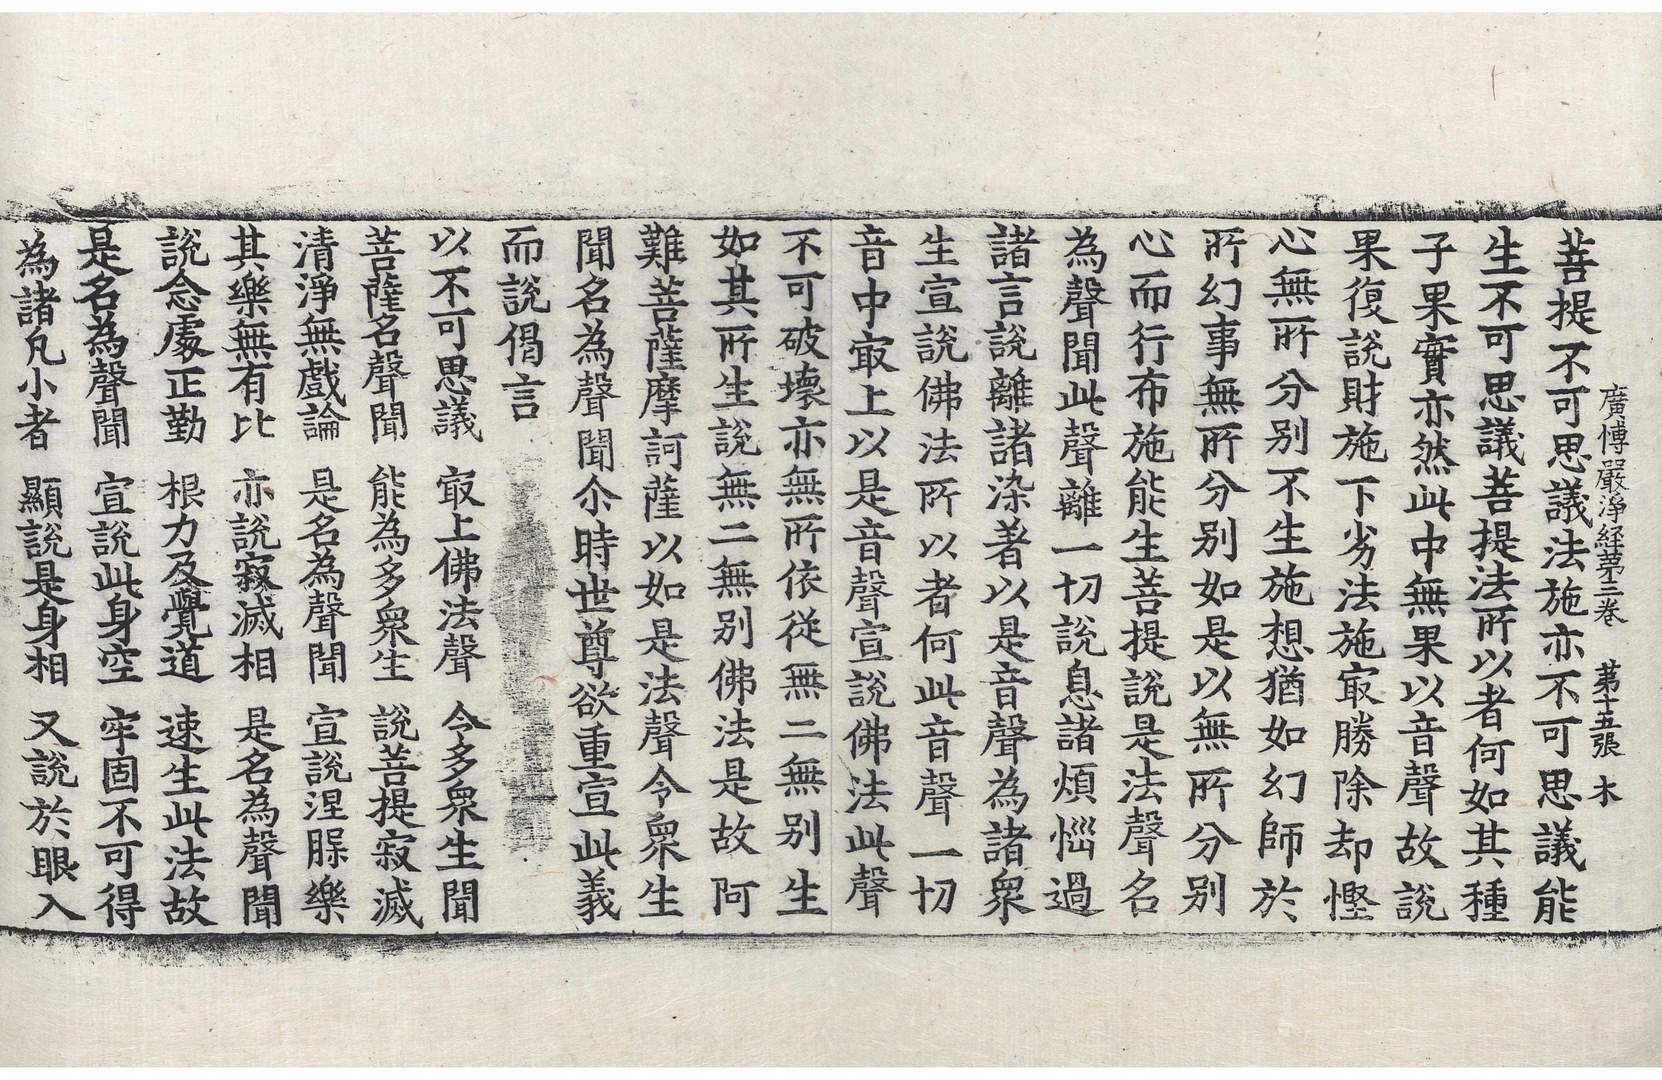 廣博嚴淨経第三卷 第十五張 木
菩提不可思議法施亦不可思議能
生不可思議菩提法所以者何如其種
子果實亦然此中無果以音聲故說
果復說財施下劣法施㝡勝除却慳
心無所分别不生施想猶如幻師於
所幻事無所分别如是以無所分别
心而行布施能生菩提說是法聲名
為聲聞此聲離一切說息諸煩惱過
諸言說離諸染著以是音聲為諸衆
生宣說佛法所以者何此音聲一切
音中㝡上以是音聲宣說佛法此聲
不可破壞亦無所依從無二無别生
如其所生說無二無别佛法是故阿
難菩薩摩訶薩以如是法聲令衆生
聞名為聲聞尒時世尊欲重宣此義
而說偈言
以不可思議 㝡上佛法聲 令多衆生聞
菩薩名聲聞 能為多衆生 說菩提寂滅
清淨無戲論 是名為聲聞 宣說涅脲樂
其樂無有比 亦說寂滅相 是名為聲聞
說念處正勤 根力及覺道 速生此法故
是名為聲聞 宣說此身空 牢固不可得
為諸凡小者 顯說是身相 又說於眼入